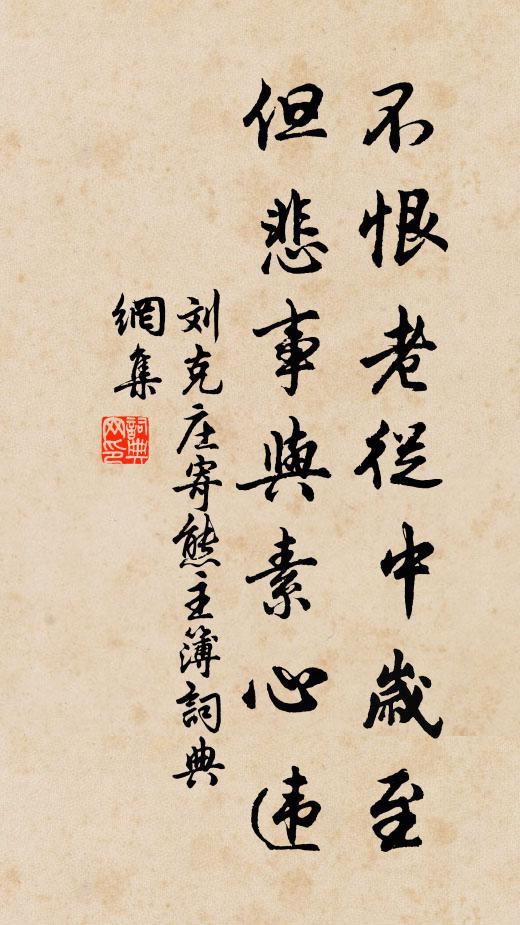 不恨老從中歲至
但悲事與素心违
刘克庄寄熊主簿詞典
網集
詞典
网印